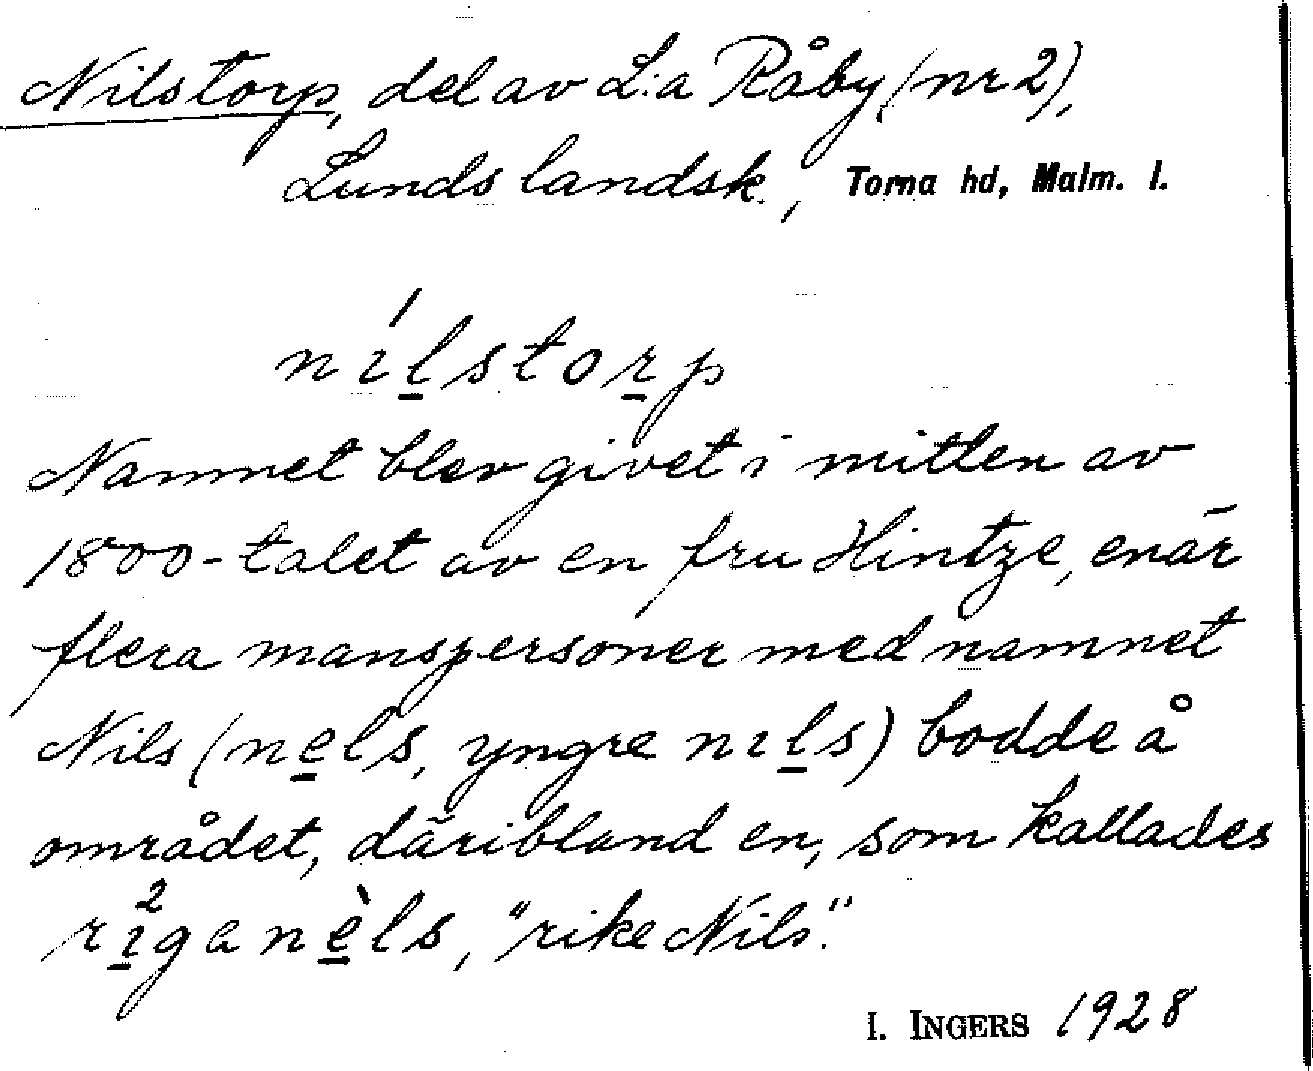 Nilstorp, del av L:a Råby (nr 2),
Lunds landsk., Torna hd, Malm. l.
nı́l̲stor̲p
Namnet blev givet i mitten av
1800-talet av en fru Hintze, enär
flera manspersoner med namnet
Nils (ne̲ls, yngre nıl̲s) bodde å
området, däribland en, som kallades
rı̲²ganè̲ls, "rike Nils."
I. INGERS 1928